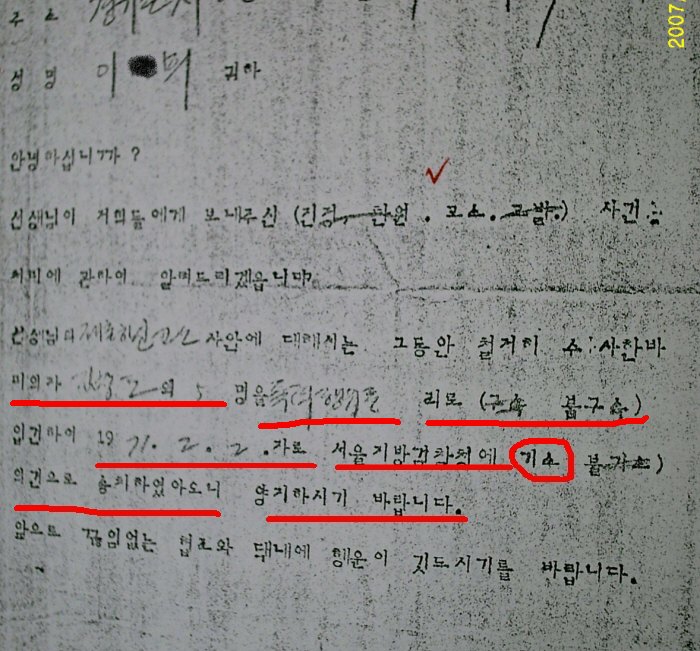 2007
주 소
성 명 이 미 귀하
안녕하십니까?
선생님이 저희들에게 보내주신 (진정, 탄원. 고소. 고발.) 사건
처리에 관하여 알려드리겠읍니다.
선생님의 제출하신 고소 사안에 대해서는 그동안 철저히 수사한바
피의자 외 5 명을 리로 (구속 불구속)
입건하여 19 71. 2. 2. 자로 서울지방검찰청에 기소 불기소)
의견으로 송치하였아오니 양지하시기 바랍니다.
앞으로 끊임없는 협조와 댁내에 행운이 깃드시기를 바랍니다.